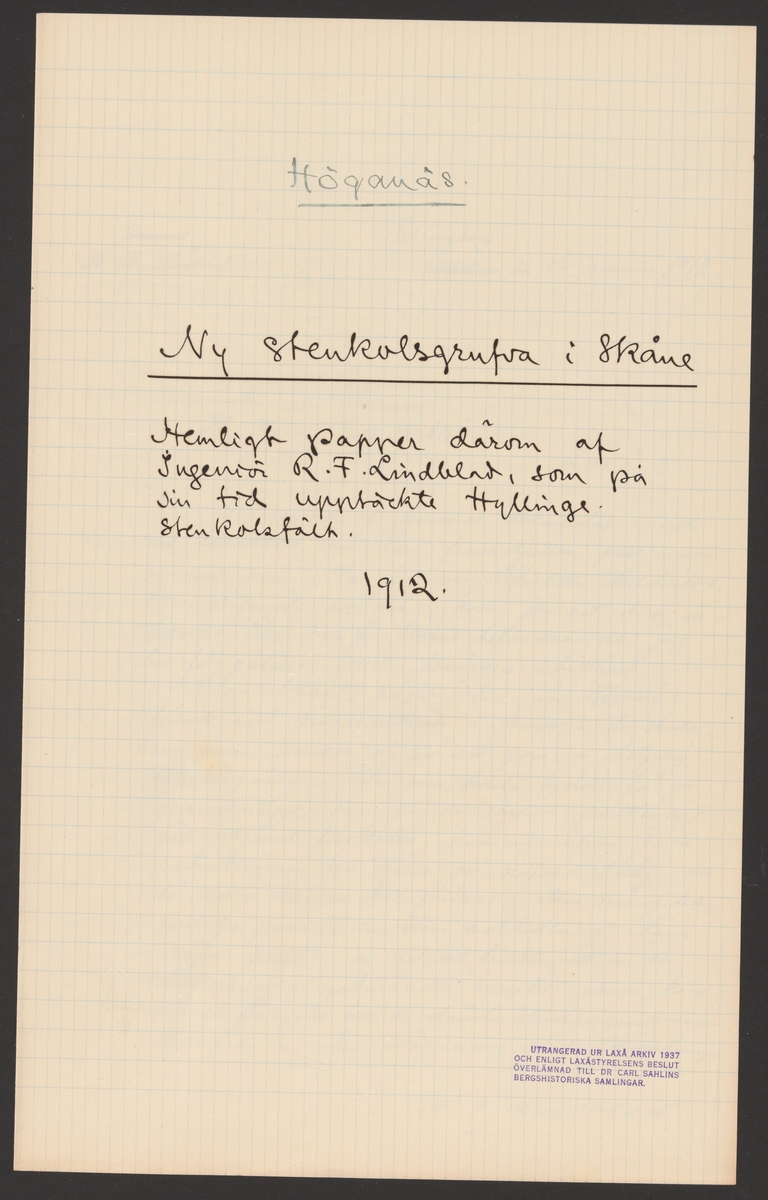 Höganäs.
Ny Stenkolsgrufva i Skåne
Hemligt papper därom af
Ingeniör R. F. Lindblad, som på
sin tid upptäckte Hyllinge
Stenkolsfält.
1912.
UTRANGERAD UR LAXÅ ARKIV 1937
OCH ENLIGT LAXÅSTYRELSENS BESLUT
ÖVERLÄMNAD TILL DR CARL SAHLINS
BERGSHISTORISKA SAMLINGAR.